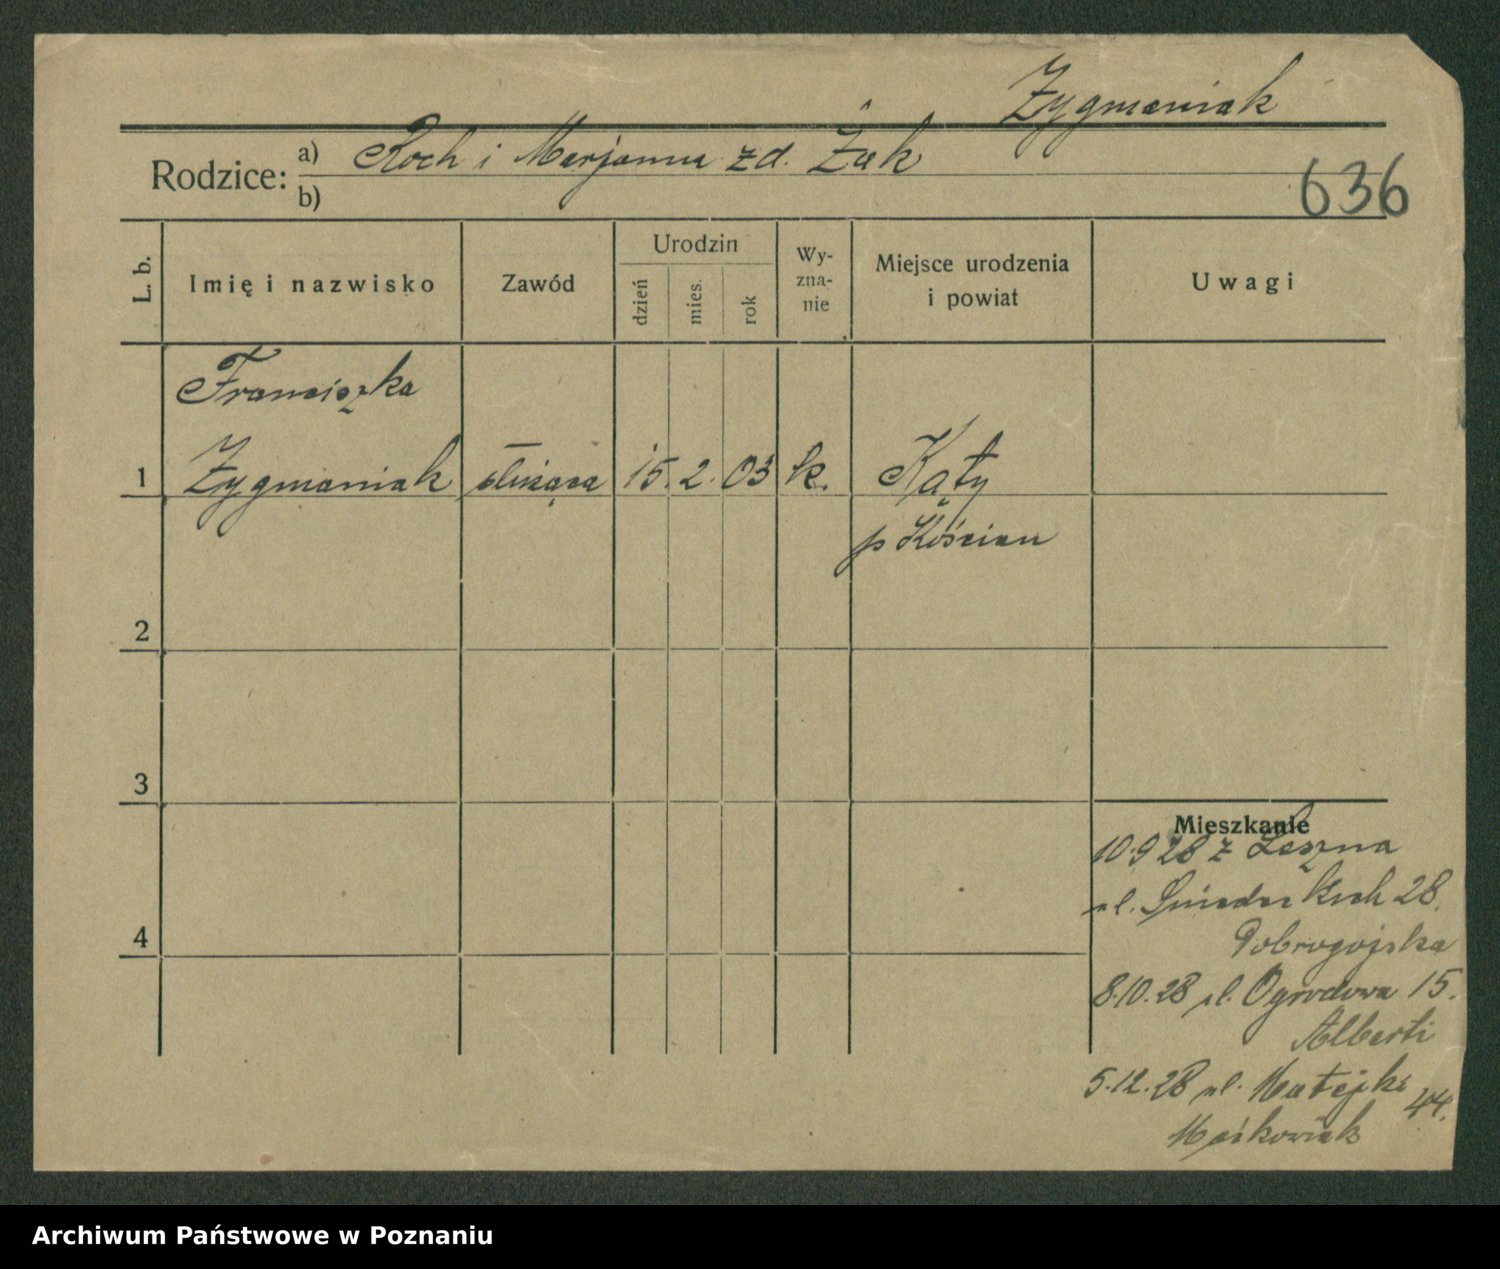 Zygmaniak
Rodzice: a) Roch i Marjanna zd. Żak
b)
636
L. b.
Imię i nazwisko
Zawód
Urodzin
dzień
mies.
rok
Wy-
zna-
nie
Miejsce urodzenia
i powiat
Uwagi
Franciszka
1 Zygmaniak służąca 15. 2. 03 k. Kąty
p Kościan
2
3
4
Mieszkanie
10.9 28 z Leszna
ul. Śniadeckich 28.
Dobrogojska
8.10.28 ul. Ogrodowa 15.
Alberti
5.12.28 ul. Matejki 44.
Maśkowiak
Archiwum Państwowe w Poznaniu